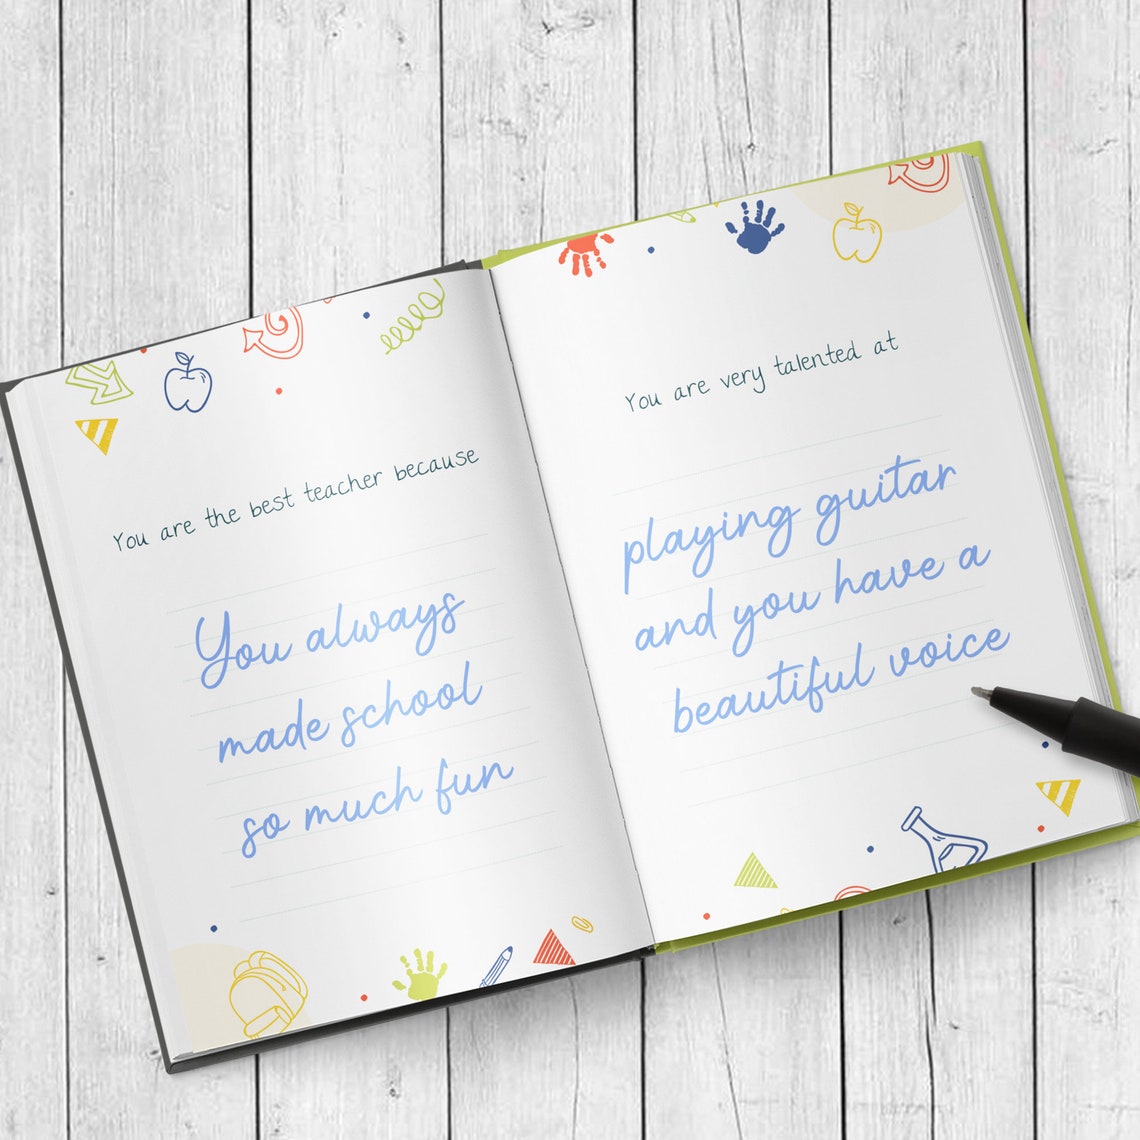 You are the best teacher because
You always
made school
so much fun
You are very talented at
playing guitar
and you have a
beautiful voice